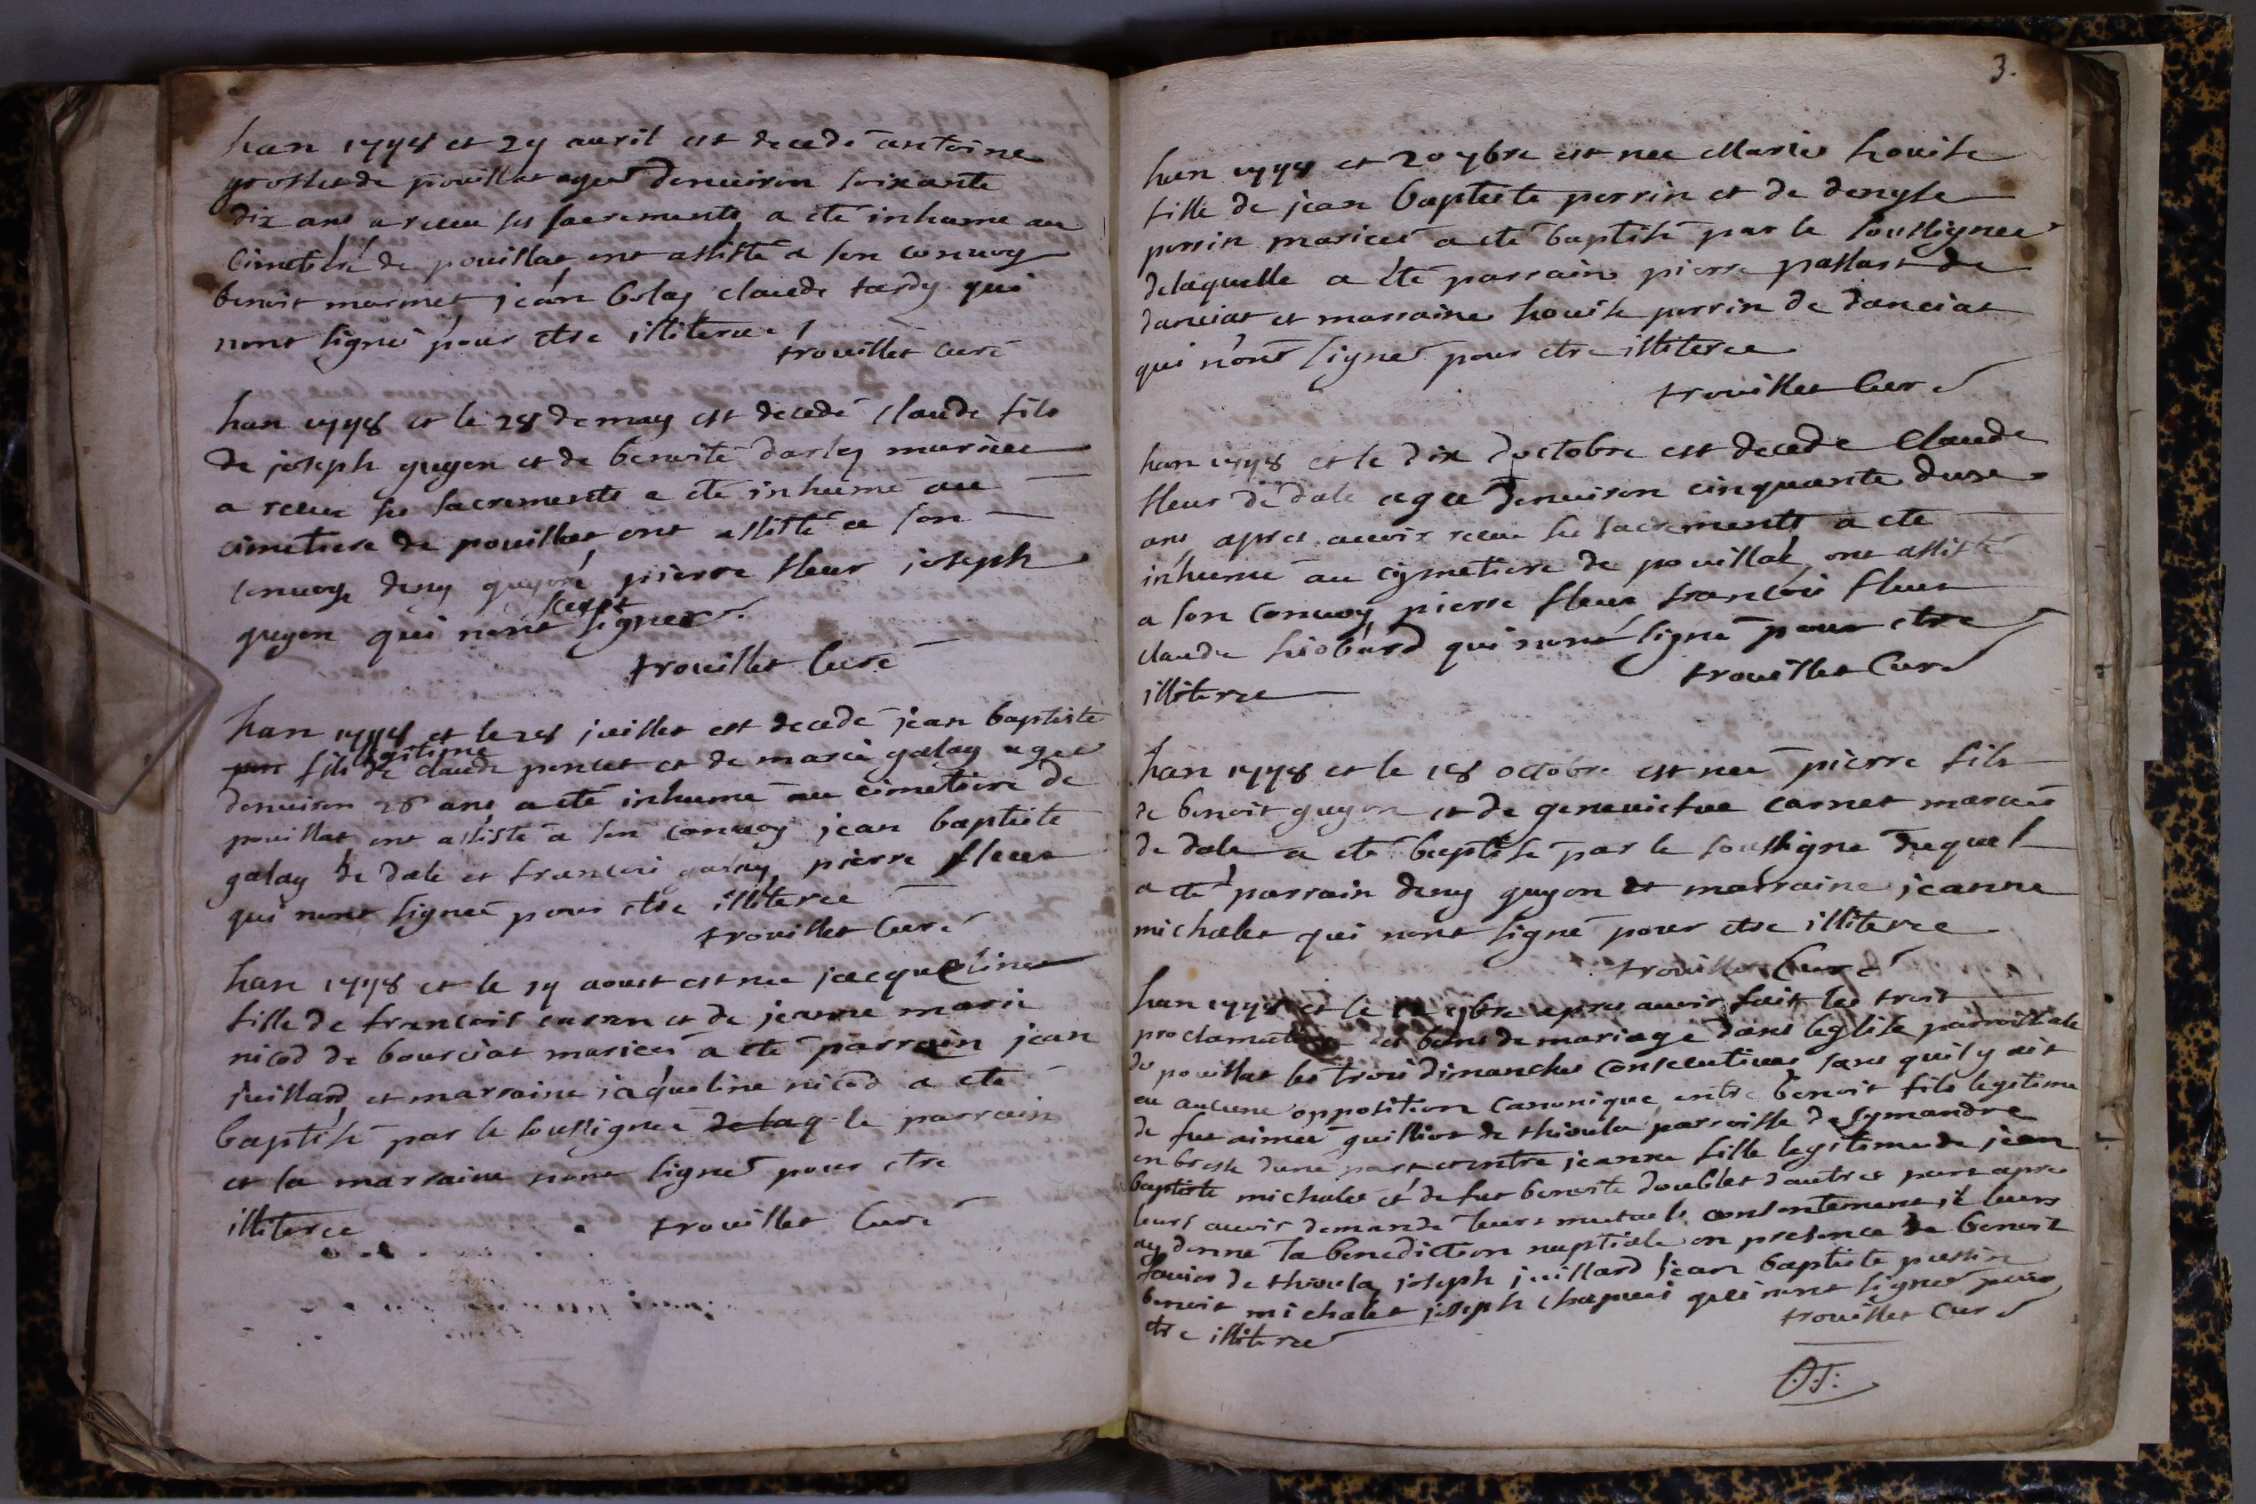 Lan 1748 et 27 avril est decedé antoine
grosset de pouillat agee denuiron soixante
dix ans a receu ses sacrements a eté inhume au
Cimetiere de pouillat ont assiste a son convoy
benoit marmet jean bolay claude tardy qui
nont signé pour etre illiteree
trouillet curé
Lan 1748 et le 28 de may est decedé claude fils
de joseph guyon et de benoite darley mariees
a receu ses sacrements a eté inhumé au
cimetiere de pouillat ont assisté a son
convoy deny guyon pierre fleur joseph
guyon qui nont sceut signer
trouillet Curé
Lan 1748 et le 28 juillet est decedé jean baptiste
fils legitime de claude poncet et de marie galay agee
denuiron 28 ans a eté inhumé au cimetiere de
pouillat ont assisté a son convoy jean baptiste
galay de dale et francois galay pierre fleur
qui nont signeé pour etre illiteree
trouillet Curé
Lan 1748 et le 17 aoust est nee jacqueline
fille de francois et de jeanne marie
nicod de bourciat mariees a eté parrain jean
juillard et marraine jaqueline nicod a eté
baptisé par le soussigneé de laq. le parrain
et la marraine nont signé pour etre
illiteree trouillet Curé
3.
Lan 1748 et 20 7bre est nee Marie Louise
fille de jean baptiste perrin et de denyse
perrin mariees a eté baptisé par le soussignee
delaquelle a été parrain pierre passart de
danciat et marraine Louise perrin de danciat
qui n'ont signé pour etre illiteree
trouillet Curé
Lan 1748 et le dix doctobre est decede Claude
fleur de dale agee denuiron cinquante duze
ans apres avoir receu ses sacrements a eté
inhumé au cymetiere de pouillat ont assisté
a son convoy pierre fleur francois fleur
claude qui nont signé pour etre
illiteree trouillet Curé
Lan 1748 et le 18 octobre est neé pierre fils
de benoit guyon et de geneviefve carnet mariés
de dale a eté baptisé par le soussigné duquel
a eté parrain deny guyon et marraine jeanne
michalet qui nont signé pour etre illiteree
trouillet Curé
Lan 1748 et le 9bre apres avoir fait les trois
proclamations des bans de mariage dans leglise parroissiale
de pouillat les trois dimanches consecutives sans quil y ait
eu aucune opposition canonique entre benoit fils legitime
de fut aimeé guillot de thioula parroisse de symandre
en bresse dune part et entre jeanne fille legitime de jean
baptiste michalet et de fut benoite doublet dautres part apres
leurs avoir demandé leurs mutuels consentement je leurs
ay donne la benediction nuptiale en presence de benoit
de thioula joseph juillard jean baptiste
benoit michalet joseph chapuis qui nont signé pour
etre illiteree trouillet Curé